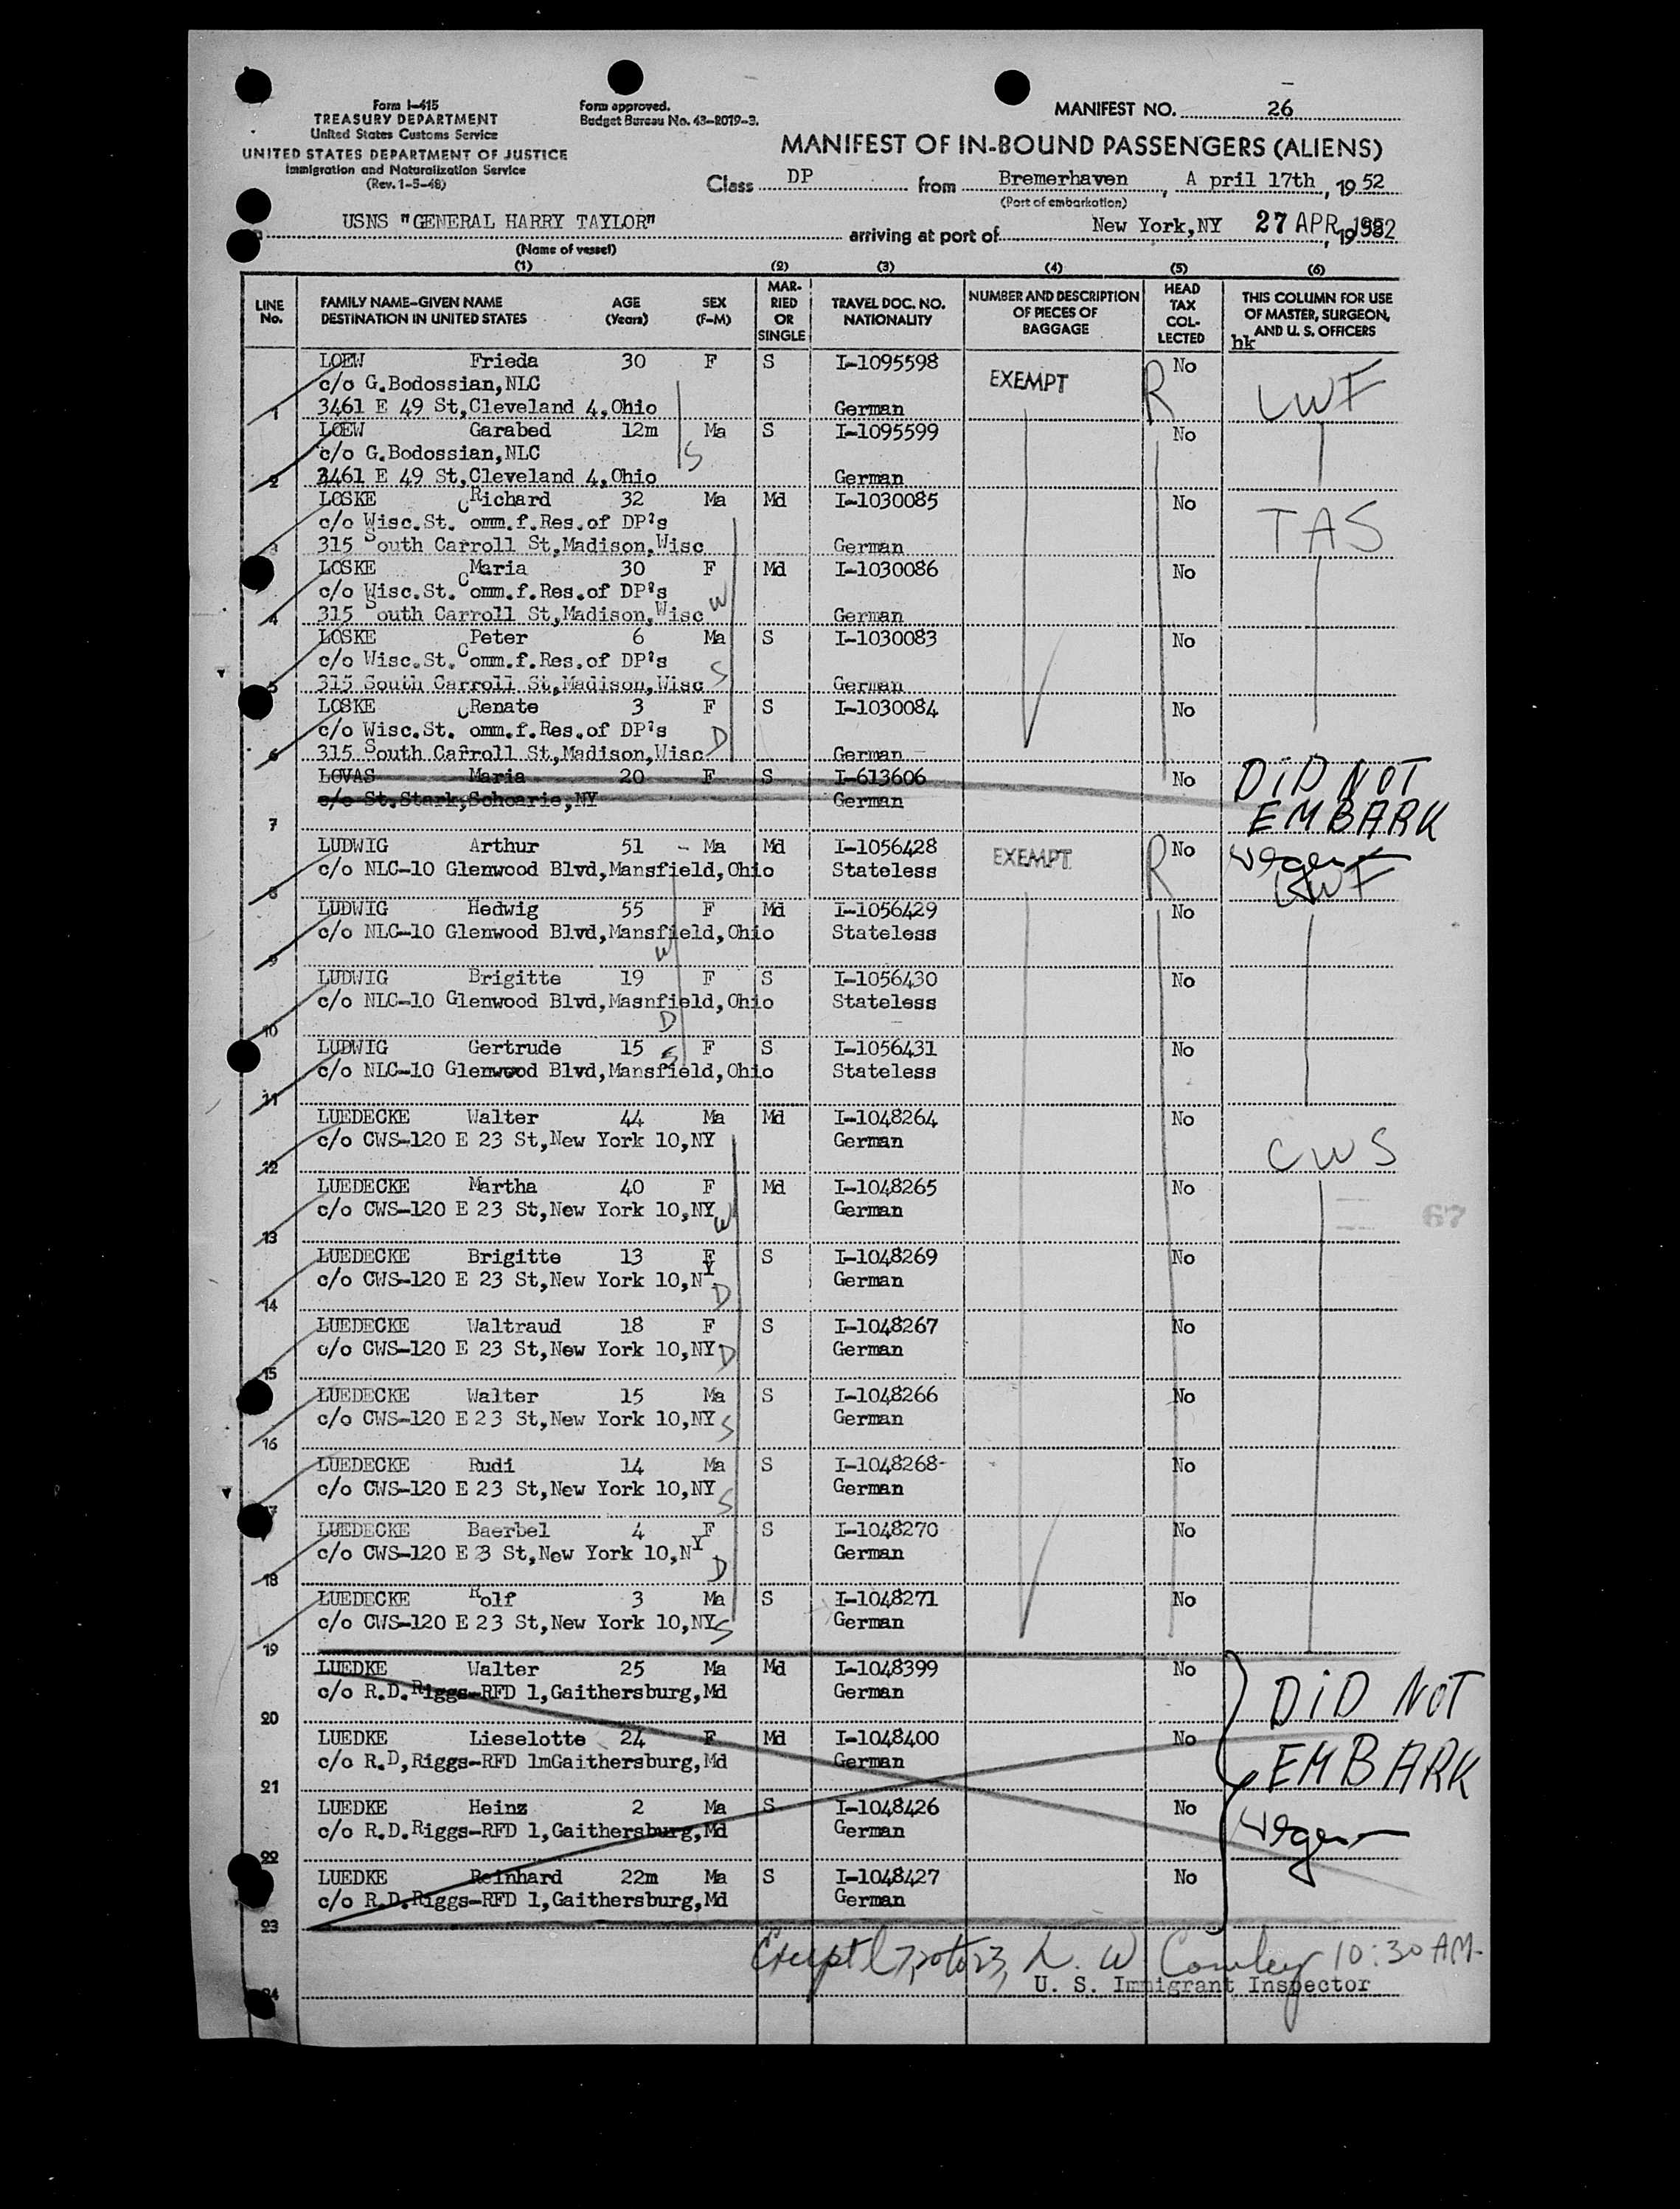 Form I-415
TREASURY DEPARTMENT
United States Customs Service
UNITED STATES DEPARTMENT OF JUSTICE
Immigration and Naturalization Service
(Rev. 1-5-48)
Form approved.
Budget Bureau No. 43-R019-3.
MANIFEST NO. 26
MANIFEST OF IN-BOUND PASSENGERS (ALIENS)
Class DP from Bremerhaven, A pril 17th, 1952
(Port of embarkation)
USNS "GENERAL HARRY TAYLOR" arriving at port of New York,NY 27 APR 1952
(Name of vessel)
(1) (2) (3) (4) (5) (6)
LINE No. FAMILY NAME-GIVEN NAME DESTINATION IN UNITED STATES AGE (Years) SEX (F-M) MAR-RIED OR SINGLE TRAVEL DOC. NO. NATIONALITY NUMBER AND DESCRIPTION OF PIECES OF BAGGAGE HEAD TAX COL-LECTED THIS COLUMN FOR USE OF MASTER, SURGEON, AND U. S. OFFICERS
hk
LOEW Frieda 30 F S I-1095598 EXEMPT R No LWF
c/o G.Bodossian,NLC
1 3461 E 49 St,Cleveland 4,Ohio German
LOEW Garabed 12m Ma S I-1095599 No
c/o G.Bodossian,NLC S
2 3461 E 49 St,Cleveland 4,Ohio German
LOSKE Richard 32 Ma Md I-1030085 No TAS
c/o Wisc.St. Comm.f.Res.of DP's
3 315 South Carroll St,Madison,Wisc German
LOSKE Maria 30 F Md I-1030086 No
c/o Wisc.St. Comm.f.Res.of DP's W
4 315 South Carroll St,Madison,Wisc German
LOSKE Peter 6 Ma S I-1030083 No
c/o Wisc.St. Comm.f.Res.of DP's S
5 315 South Carroll St,Madison,Wisc German
LOSKE Renate 3 F S I-1030084 No
c/o Wisc.St. Comm.f.Res.of DP's D
6 315 South Carroll St,Madison,Wisc German
LOVAS Maria 20 F S I-613606 No DID NOT
c/o St,Stark,Schoarie,NY German EMBARK
7
LUDWIG Arthur 51 - Ma Md I-1056428 EXEMPT R No
c/o NLC-10 Glenwood Blvd,Mansfield,Ohio Stateless LWF
8
LUDWIG Hedwig 55 F Md I-1056429 No
c/o NLC-10 Glenwood Blvd,Mansfield,Ohio Stateless
9 W
LUDWIG Brigitte 19 F S I-1056430 No
c/o NLC-10 Glenwood Blvd,Masnfield,Ohio Stateless
10 D
LUDWIG Gertrude 15 S F S I-1056431 No
c/o NLC-10 Glenwood Blvd,Mansfield,Ohio Stateless
11
LUEDECKE Walter 44 Ma Md I-1048264 No
c/o CWS-120 E 23 St,New York 10,NY German CWS
12
LUEDECKE Martha 40 F Md I-1048265 No
c/o CWS-120 E 23 St,New York 10,NY W German 67
13
LUEDECKE Brigitte 13 F S I-1048269 No
c/o CWS-120 E 23 St,New York 10,NY D German
14
LUEDECKE Waltraud 18 F S I-1048267 No
c/o CWS-120 E 23 St,New York 10,NY D German
15
LUEDECKE Walter 15 Ma S I-1048266 No
c/o CWS-120 E 23 St,New York 10,NY S German
16
LUEDECKE Rudi 14 Ma S I-1048268- No
c/o CWS-120 E 23 St,New York 10,NY S German
17
LUEDECKE Baerbel 4 F S I-1048270 No
c/o CWS-120 E 3 St,New York 10,NY D German
18
LUEDECKE Rolf 3 Ma S I-1048271 No
c/o CWS-120 E 23 St,New York 10,NY S German
19
LUEDKE Walter 25 Ma Md I-1048399 No DID NOT
c/o R.D.Riggs-RFD 1,Gaithersburg,Md German
20
LUEDKE Lieselotte 24 F Md I-1048400 No EMBARK
c/o R.D,Riggs-RFD 1mGaithersburg,Md German
21
LUEDKE Heinz 2 Ma S I-1048426 No
c/o R.D.Riggs-RFD 1,Gaithersburg,Md German
22
LUEDKE Reinhard 22m Ma S I-1048427 No
c/o R.D.Riggs-RFD 1,Gaithersburg,Md German
23
Except l 7, 20 to 23, L. W Conley 10:30 AM-
U. S. Immigrant Inspector
24